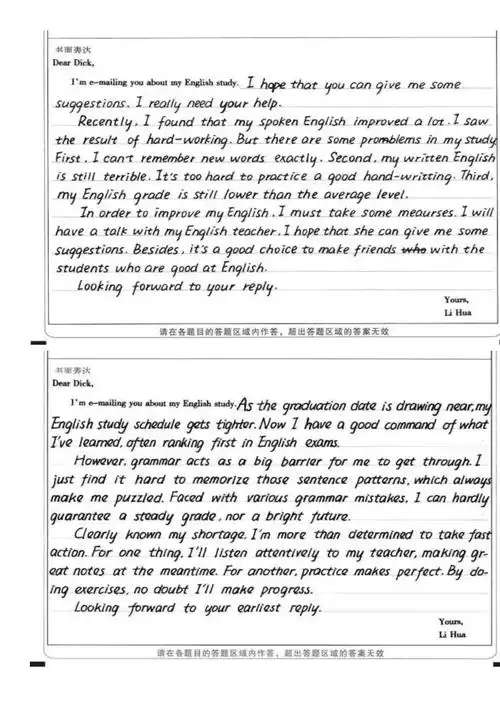 书面表达
Dear Dick,
I'm e-mailing you about my English study. I hope that you can give me some
suggestions. I really need your help.
Recently, I found that my spoken English improved a lot. I saw
the result of hard-working. But there are some promblems in my study.
First, I can't remember new words exactly. Second, my written English
is still terrible. It's too hard to practice a good hand-writting. Third,
my English grade is still lower than the average level.
In order to improve my English, I must take some meaurses. I will
have a talk with my English teacher, I hope that she can give me some
suggestions. Besides, it's a good choice to make friends who with the
students who are good at English.
Looking forward to your reply.
Yours,
Li Hua
请在各题目的答题区域内作答，超出答题区域的答案无效
书面表达
Dear Dick,
I'm e-mailing you about my English study. As the graduation date is drawing near, my
English study schedule gets tighter. Now I have a good command of what
I've learned, often ranking first in English exams.
However, grammar acts as a big barrier for me to get through. I
just find it hard to memorize those sentence patterns, which always
make me puzzled. Faced with various grammar mistakes, I can hardly
guarantee a steady grade, nor a bright future.
Clearly known my shortage, I'm more than determined to take fast
action. For one thing, I'll listen attentively to my teacher, making gr-
eat notes at the meantime. For another, practice makes perfect. By do-
ing exercises, no doubt I'll make progress.
Looking forward to your earliest reply.
Yours,
Li Hua
请在各题目的答题区域内作答，超出答题区域的答案无效